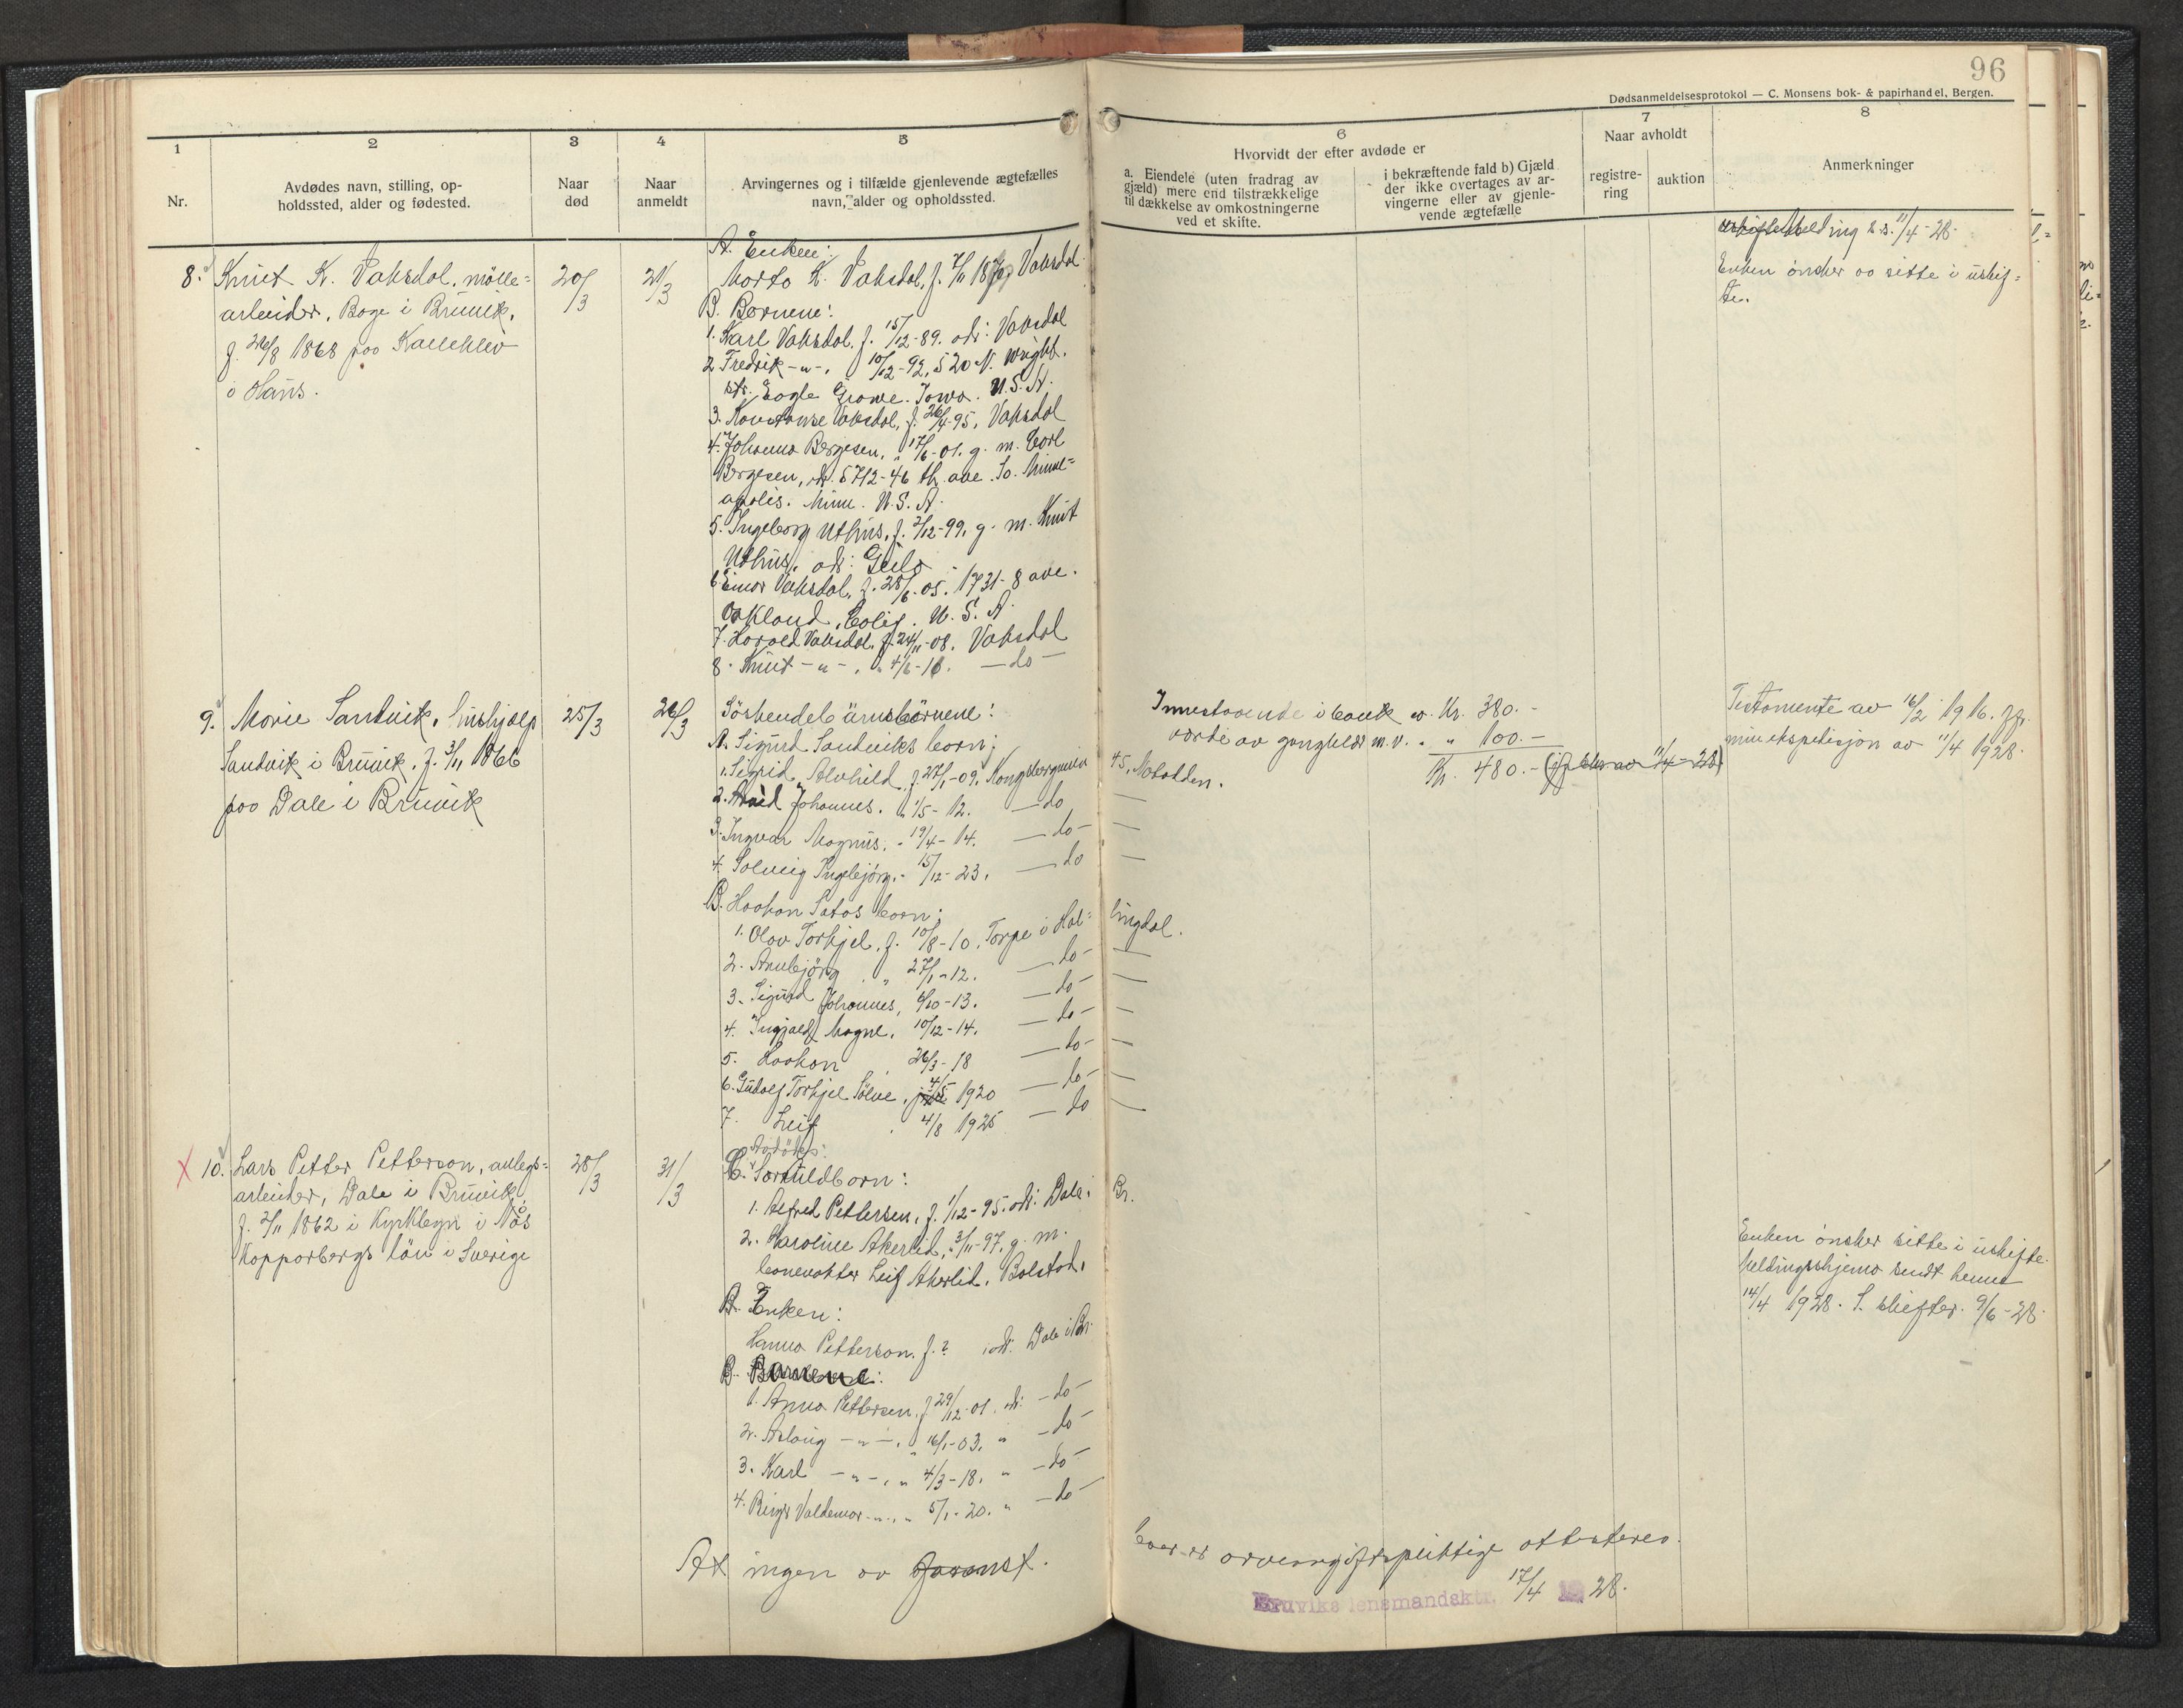 96
Dødsanmeldelsesprotokol — C. Monsens bok- & papirhandel, Bergen.
1
Nr.
2
Avdødes navn, stilling, op-
holdssted, alder og fødested.
3
Naar
død
4
Naar
anmeldt
5
Arvingernes og i tilfælde gjenlevende ægtefælles
navn, alder og opholdssted.
6
Hvorvidt der efter avdøde er
a. Eiendele (uten fradrag av
gjæld) mere end tilstrækkelige
til dækkelse av omkostningerne
ved et skifte.
i bekræftende fald b) Gjæld
der ikke overtages av ar-
vingerne eller av gjenle-
vende ægtefælle
7
Naar avholdt
registre-
ring
auktion
8
Anmerkninger
8. Knut K. Vaksdal, mölle=
arbeider, Boge i Bruvik,
f. 26/8 1868 paa
i Haus.
20/3
21/3
A. Enken:
K. Vaksdal, f. Vaksdal
B. Börnene:
1. Karl Vaksdal, f. 15/12-89. adr: Vaksdal
2. Fredrik -"-, 10/12-92, 520 N. Wright.
str. Eagle Growe. Iowa. U.S.A.
3. Konstanse Vaksdal, f. 26/4-95, Vaksdal
4. Johanna Bergesen, " 17/6-01. g. m. Carl
Bergesen, adr. 5712-46 th ave. So. Minne=
apolis. Minn. U.S.A.
5. Ingeborg Uthus, f. 2/12-99, g. m. Knut
Uthus, adr:
6. Einar Vaksdal, f. 28/6-05. 1731-8 ave.
Oakland, Calif. U.S.A.
7. Harald Vaksdal, f. 24/11-08. Vaksdal
8. Knut -"-, " 4/6-16. — do —
11/4-28
Enken önsker aa sitte i uskif=
te.
9. Marie Sandvik, hushjælp
Sandvik i Bruvik, f. 3/11 1866
paa Dale i Bruvik
25/3
26/3
A. Sigurd Sandviks born:
1. Sigrid Alvhild, f. 27/1-09. 45, Notodden.
2. Johannes. " 1/5-12. — do —
3. Ingvar Magnus. - 19/4-14. — do —
4. Solveig Ingebjörg. - 15/12-23. — do —
B. Haakon Satas born:
1. Olav Torkjel, f. 10/8-10, Torpe i Hal= lingdal.
2. Annbjörg " 27/1-12. — do —
3. Sigurd Johannes, 6/10-13. — do —
4. Ingjald Magne. 10/12-14. — do —
5. Haakon 26/3-18 — do —
6. Gudolf Torkjel Sölve, 4/5 1920 — do —
7. Leif 4/8 1925 — do —
Innestaaende i bank ca. Kr. 380.-
værdi av gangklær m.v. " " 100.-
Kr. 480.-
Testamente av 16/2 1916. Jfr.
min ekspedisjon av 11/4 1928.
X 10. Lars Petter Petterson, anlegs=
arbeider, Dale i Bruvik,
f. 2/11 1862 i Kyrkbyn i Nås
Kopporbergs län i Sverige
28/3
31/3
Avdödes
C. Særkuldborn:
1. Alfred Pettersen, f. 1/12-95. adr: Dale i Br.
2. Karoline Akerlid, " 3/11-97, g. m.
banevokter Leif Akerlid, Bolstad.
A. Enken:
Hanna Petterson, f. ? adr: Dale i Br.
B. Barnene:
1. Anna Pettersen, f. 29/12-01. adr: — do —
2. Aslaug -"-. " 16/1-03. " — do —
3. Karl -"-. " 4/3-18. " — do —
4. Valdemar -"-. " 5/1-20. " — do —
Enken önsker sitte i uskifte.
Meldingsskjema sendt henne
14/4 1928. S. skifter. 9/6-28.
At ingen av foranst.
er arveavgiftspliktige attesteres.
Bruviks lensmandsktr. 17/4 1928.